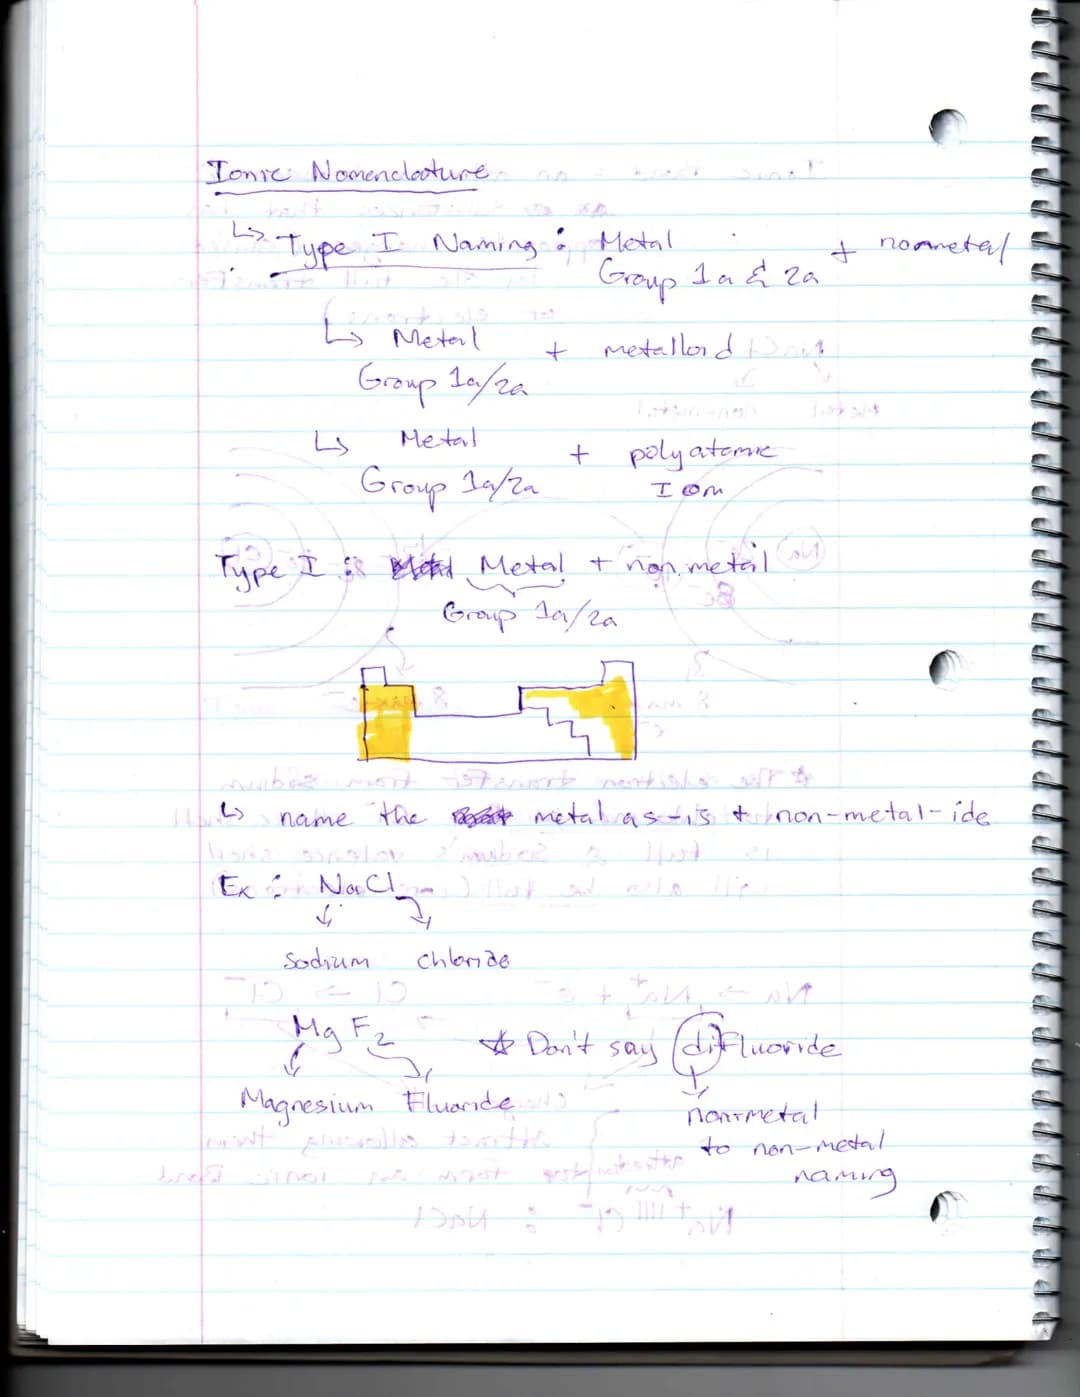 Ionic Nomenclature
↳ Type I Naming : Metal + nonmetal
Group 1a & 2a
↳ Metal + metalloid
Group 1a/2a
↳ Metal + polyatomic
Group 1a/2a Ion
Type I : Metal + non metal
Group 1a/2a
↳ name the metal as-is + non-metal-ide
Ex : NaCl
Sodium chloride
MgF2 ☆ Don't say difluoride
Magnesium Fluoride
nonmetal
to non-metal
naming